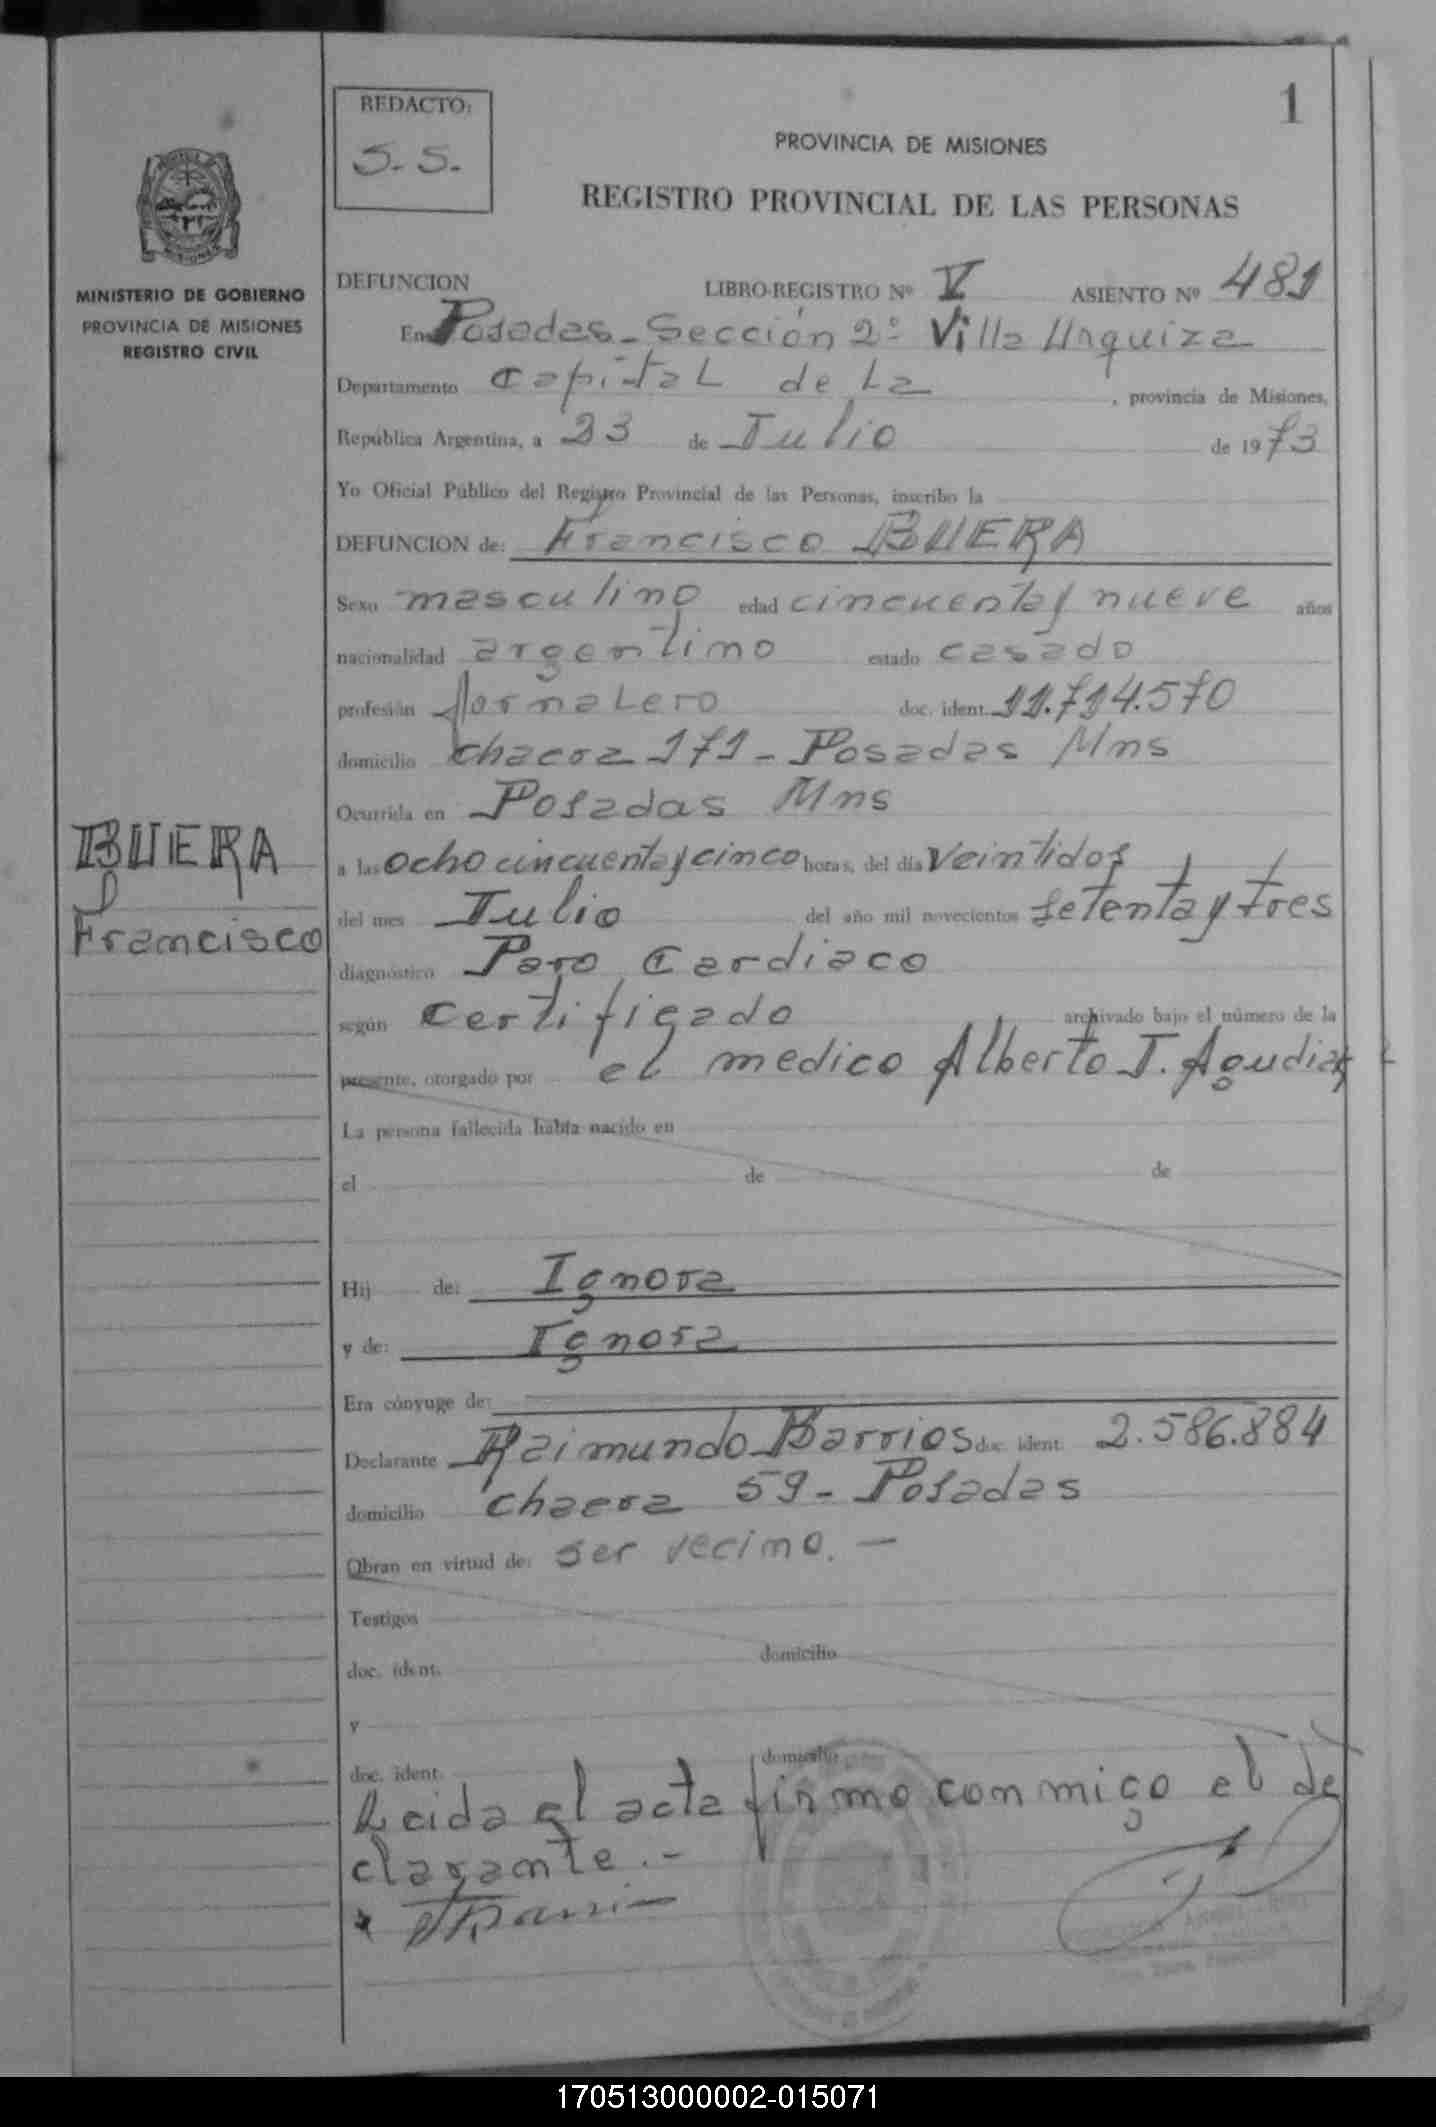 REDACTO:
S. S.
1
PROVINCIA DE MISIONES
REGISTRO PROVINCIAL DE LAS PERSONAS
MINISTERIO DE GOBIERNO
PROVINCIA DE MISIONES
REGISTRO CIVIL
DEFUNCION LIBRO-REGISTRO Nº V ASIENTO Nº 481
En Posadas - Sección 2º Villa Urquiza
Departamento Capital de La , provincia de Misiones,
República Argentina, a 23 de Julio de 1973
Yo Oficial Público del Registro Provincial de las Personas, inscribo la
DEFUNCION de: Francisco BUERA
Sexo masculino edad cincuenta y nueve años
nacionalidad argentino estado casado
profesión Jornalero doc. ident. 11.714.570
domicilio chacra 171 - Posadas Mns
Ocurrida en Posadas Mns
a las ocho cincuenta y cinco horas, del día Veintidos
del mes Julio del año mil novecientos setenta y tres
diagnóstico Paro Cardiaco
según Certificado archivado bajo el número de la
presente, otorgado por el medico Alberto J. Agudiak
La persona fallecida había nacido en
el de de
Hij de: Ignora
y de: Ignora
Era cónyuge de:
Declarante Raimundo Barrios doc. ident. 2.586.884
domicilio chacra 59 - Posadas
Obran en virtud de: ser vecino. -
Testigos
doc. ident. domicilio
y
doc. ident. domicilio
Leida el acta firmo conmigo el de
clarante . -
BUERA
Francisco
170513000002-015071